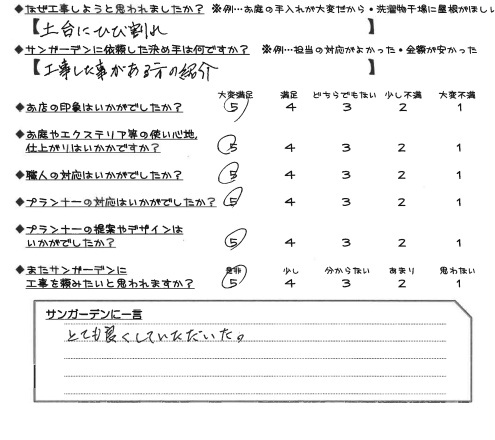 ◆なぜ工事しようと思われましたか？ ※例…お庭の手入れが大変だから・洗濯物干場に屋根がほしい
【土台にひび割れ】
◆サンガーデンに依頼した決め手は何ですか？ ※例…担当の対応がよかった・金額が安かった
【工事した事がある方の紹介】
大変満足 満足 どちらでもない 少し不満 大変不満
◆お店の印象はいかがでしたか？ 5 4 3 2 1
◆お庭やエクステリア等の使い心地,
仕上がりはいかがですか？ 5 4 3 2 1
◆職人の対応はいかがでしたか？ 5 4 3 2 1
◆プランナーの対応はいかがでしたか？ 5 4 3 2 1
◆プランナーの提案やデザインは
いかがでしたか？ 5 4 3 2 1
◆またサンガーデンに 是非 少し 分からない あまり 思わない
工事を頼みたいと思われますか？ 5 4 3 2 1
サンガーデンに一言
とても良くしていただいた。